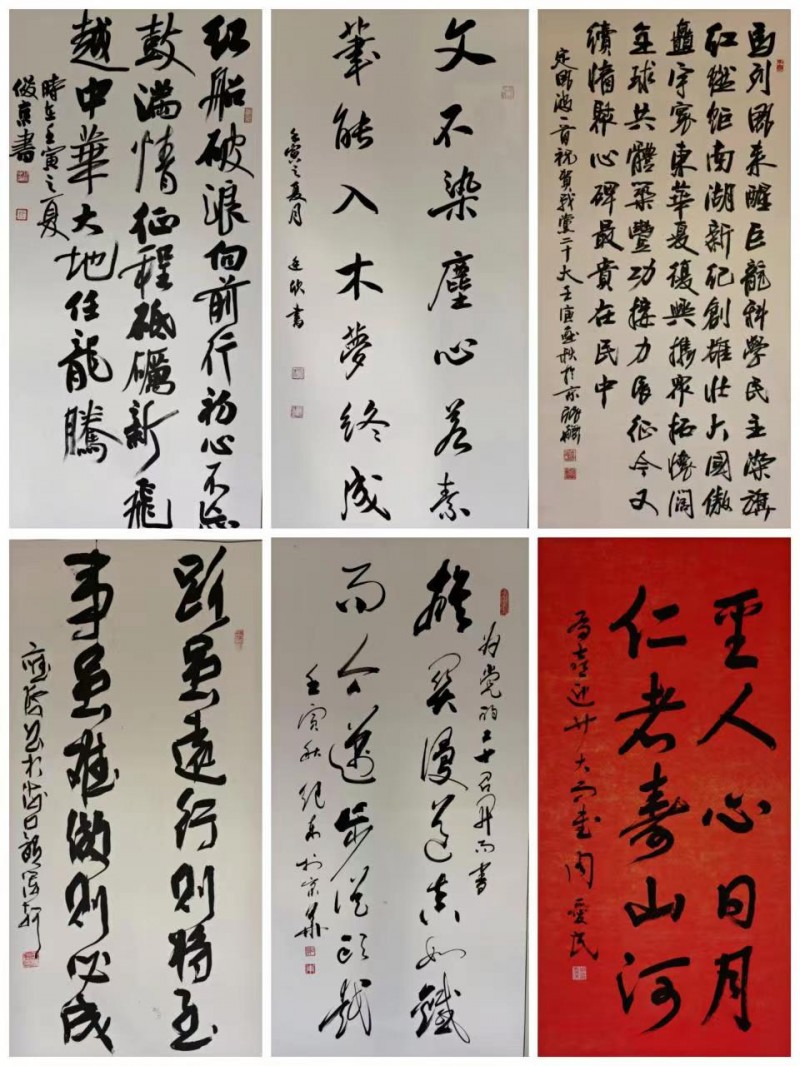 紅船破浪向前行初心不
鼓滿情征程砥礪新飛
越中華大地任龍騰
時在壬寅之夏
俊京書
文不染塵心若素
筆能入木夢終成
壬寅之夏月 廷欣書
馬列風来醒巨龍科學民主染旗
红继炬南湖新纪創雄壮大國傲
矗宇寰東華夏復興攜眾拓懷闊
全球共體築豐功接力長征今又
續脩聚心碑最貴在民中
定風波一首祝賀我黨二十大壬寅孟秋於京
距雖遠行則將至
事雖難做則必成
為党的二十召開而書
雄關漫道真如鐵
而今邁步從頭越
壬寅秋 於京華
聖人心日月
仁者壽山河
為喜迎廿大而書 周愛民